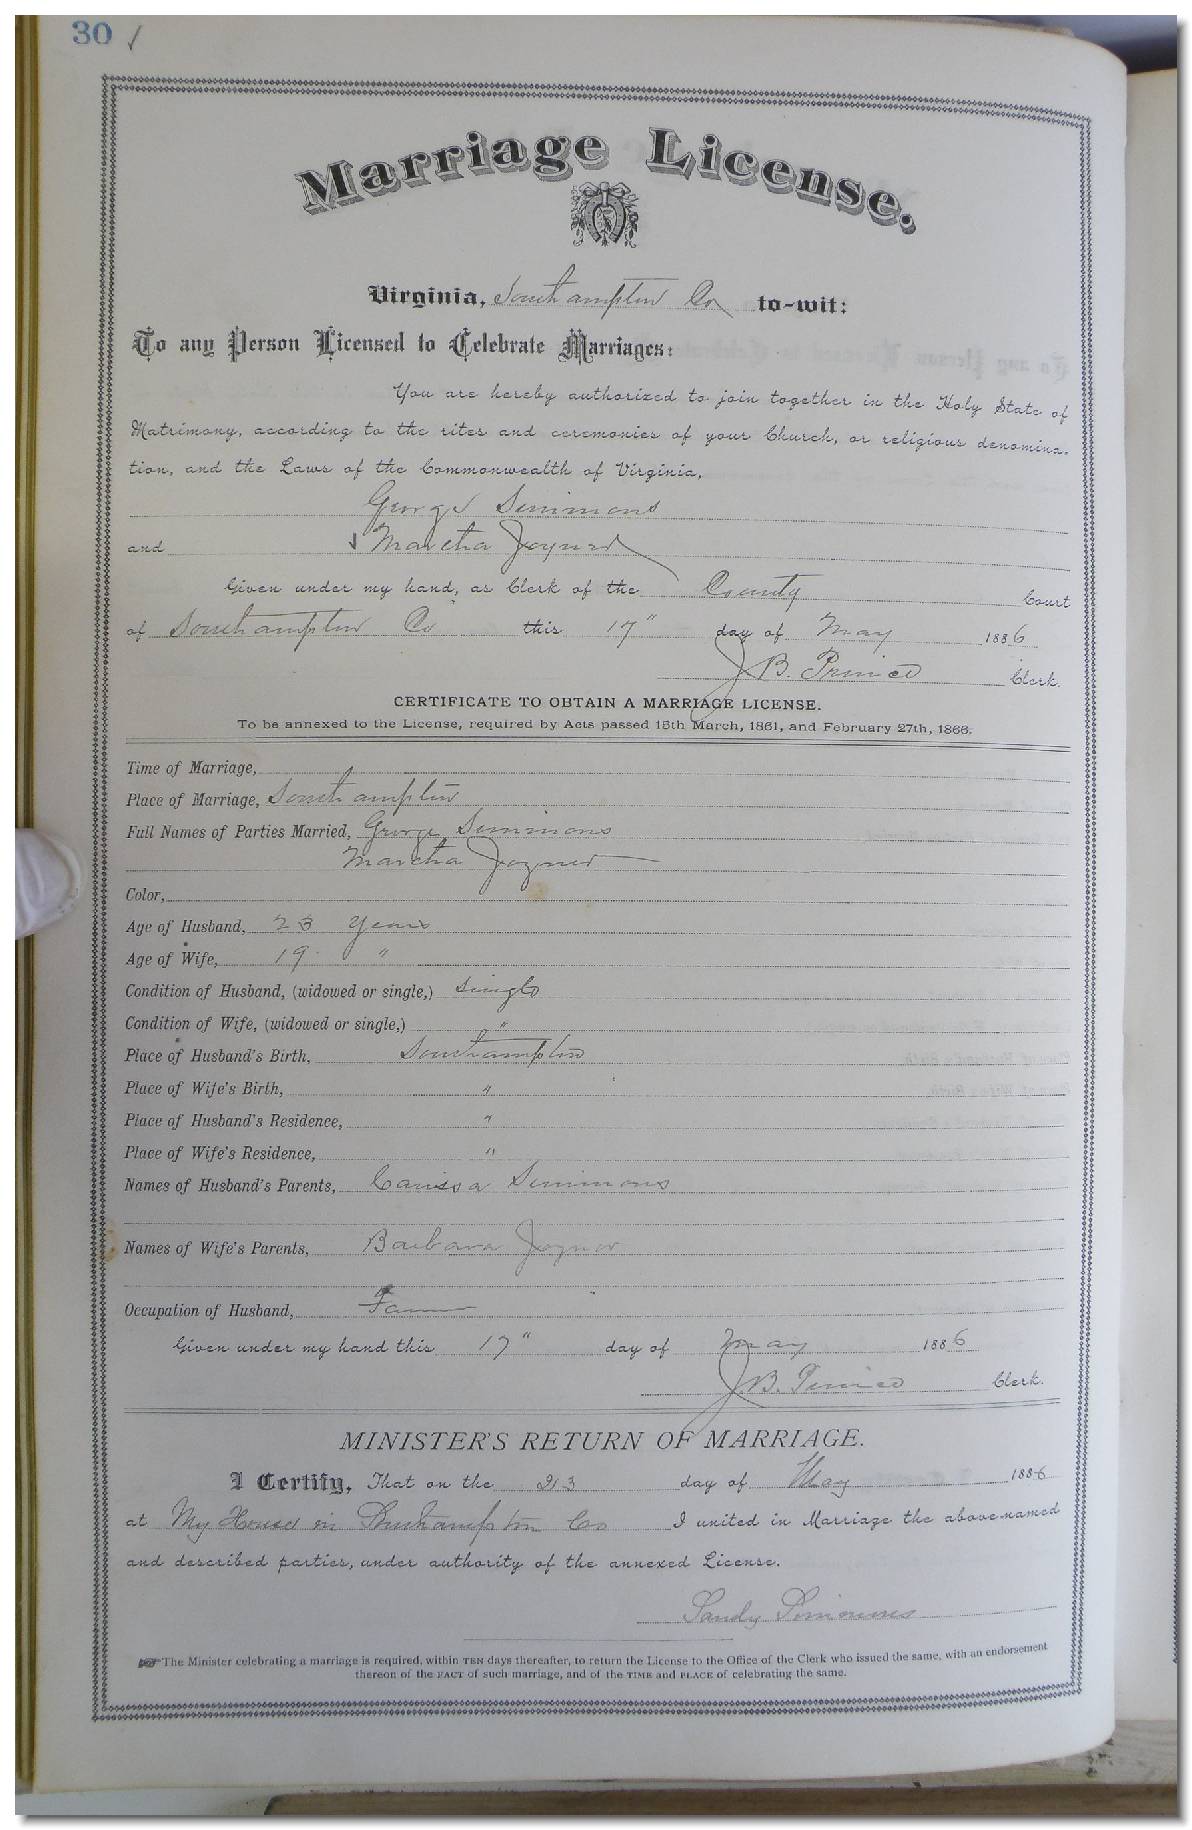 30
Marriage License.
Virginia, Southampton Co to-wit:
To any Person Licensed to Celebrate Marriages:
You are hereby authorized to join together in the Holy State of
Matrimony, according to the rites and ceremonies of your Church, or religious denomina-
tion, and the Laws of the Commonwealth of Virginia,
George Simmons
and Martha Joyner
Given under my hand, as Clerk of the County Court
of Southampton Co this 17" day of May 1886
J B. Prince Clerk.
CERTIFICATE TO OBTAIN A MARRIAGE LICENSE.
To be annexed to the License, required by Acts passed 15th March, 1861, and February 27th, 1866.
Time of Marriage,
Place of Marriage, Southampton
Full Names of Parties Married, George Simmons
Martha Joyner
Color,
Age of Husband, 23 Years
Age of Wife, 19 "
Condition of Husband, (widowed or single,) Single
Condition of Wife, (widowed or single,) "
Place of Husband's Birth, Southampton
Place of Wife's Birth, "
Place of Husband's Residence, "
Place of Wife's Residence, "
Names of Husband's Parents, Simmons
Names of Wife's Parents, Barbara Joyner
Occupation of Husband, Farmer
Given under my hand this 17" day of May 1886
J B. Prince Clerk.
MINISTER'S RETURN OF MARRIAGE.
I Certify, That on the 23 day of May 1886
at My House in Southampton Co I united in Marriage the above-named
and described parties, under authority of the annexed License.
Sandy Simmons
The Minister celebrating a marriage is required, within TEN days thereafter, to return the License to the Office of the Clerk who issued the same, with an endorsement
thereon of the FACT of such marriage, and of the TIME and PLACE of celebrating the same.